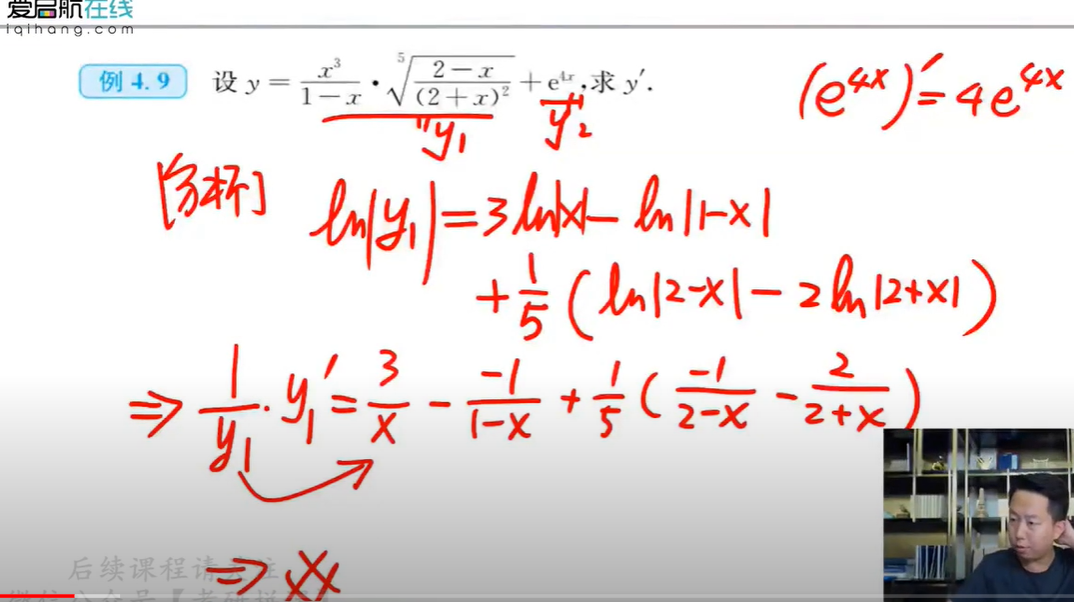 爱启航在线
iqihang.com
例 4.9 设 y = \frac{x^3}{1-x} · \sqrt[5]{\frac{2-x}{(2+x)^2}} + e^{4x}, 求 y′.
(e^{4x})′ = 4e^{4x}
y_1 y_2
[分析] ln|y_1| = 3ln|x| - ln|1-x|
+ \frac{1}{5} (ln|2-x| - 2ln|2+x|)
⇒ \frac{1}{y_1} · y_1′ = \frac{3}{x} - \frac{-1}{1-x} + \frac{1}{5} (\frac{-1}{2-x} - \frac{2}{2+x})
⇒ XX
后续课程请关注